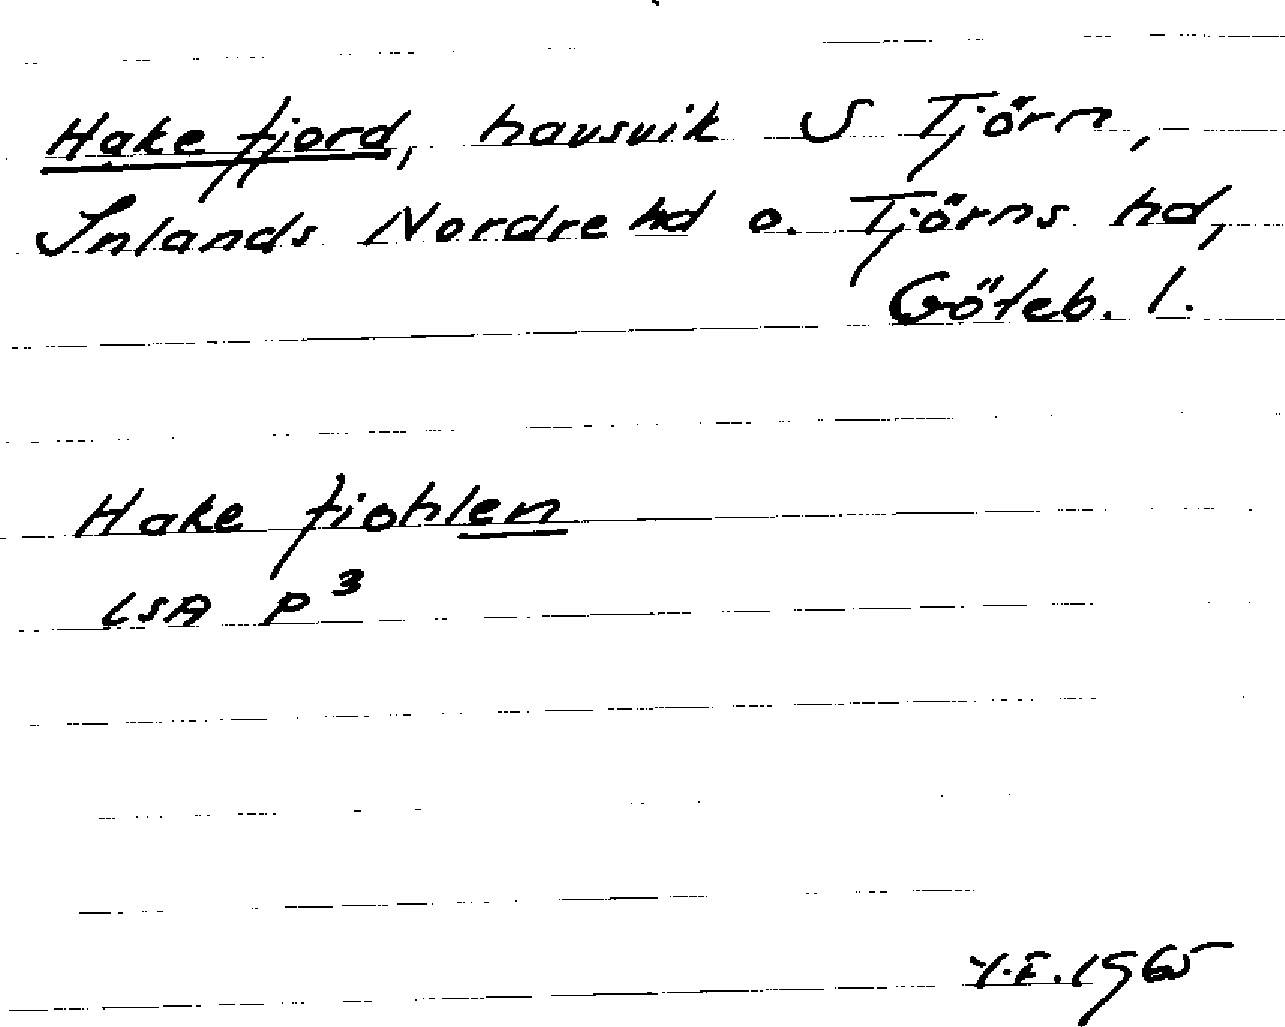 Hake fjord, havsvik S Tjörn,
Inlands Nordre hd o. Tjörns hd,
Göteb. l.
Hake fiohlen
LSA P³
Y.E. 1965